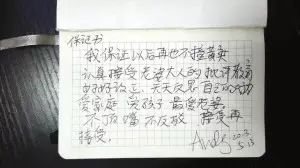 保证书
我保证以后再也不撞黄灯
认真接受老婆大人的批评教育
好好改正 天天反思自己的
爱家庭 爱孩子 最爱老婆
不顶嘴 不反驳 接受再
接受。
Andy 2013
5.13